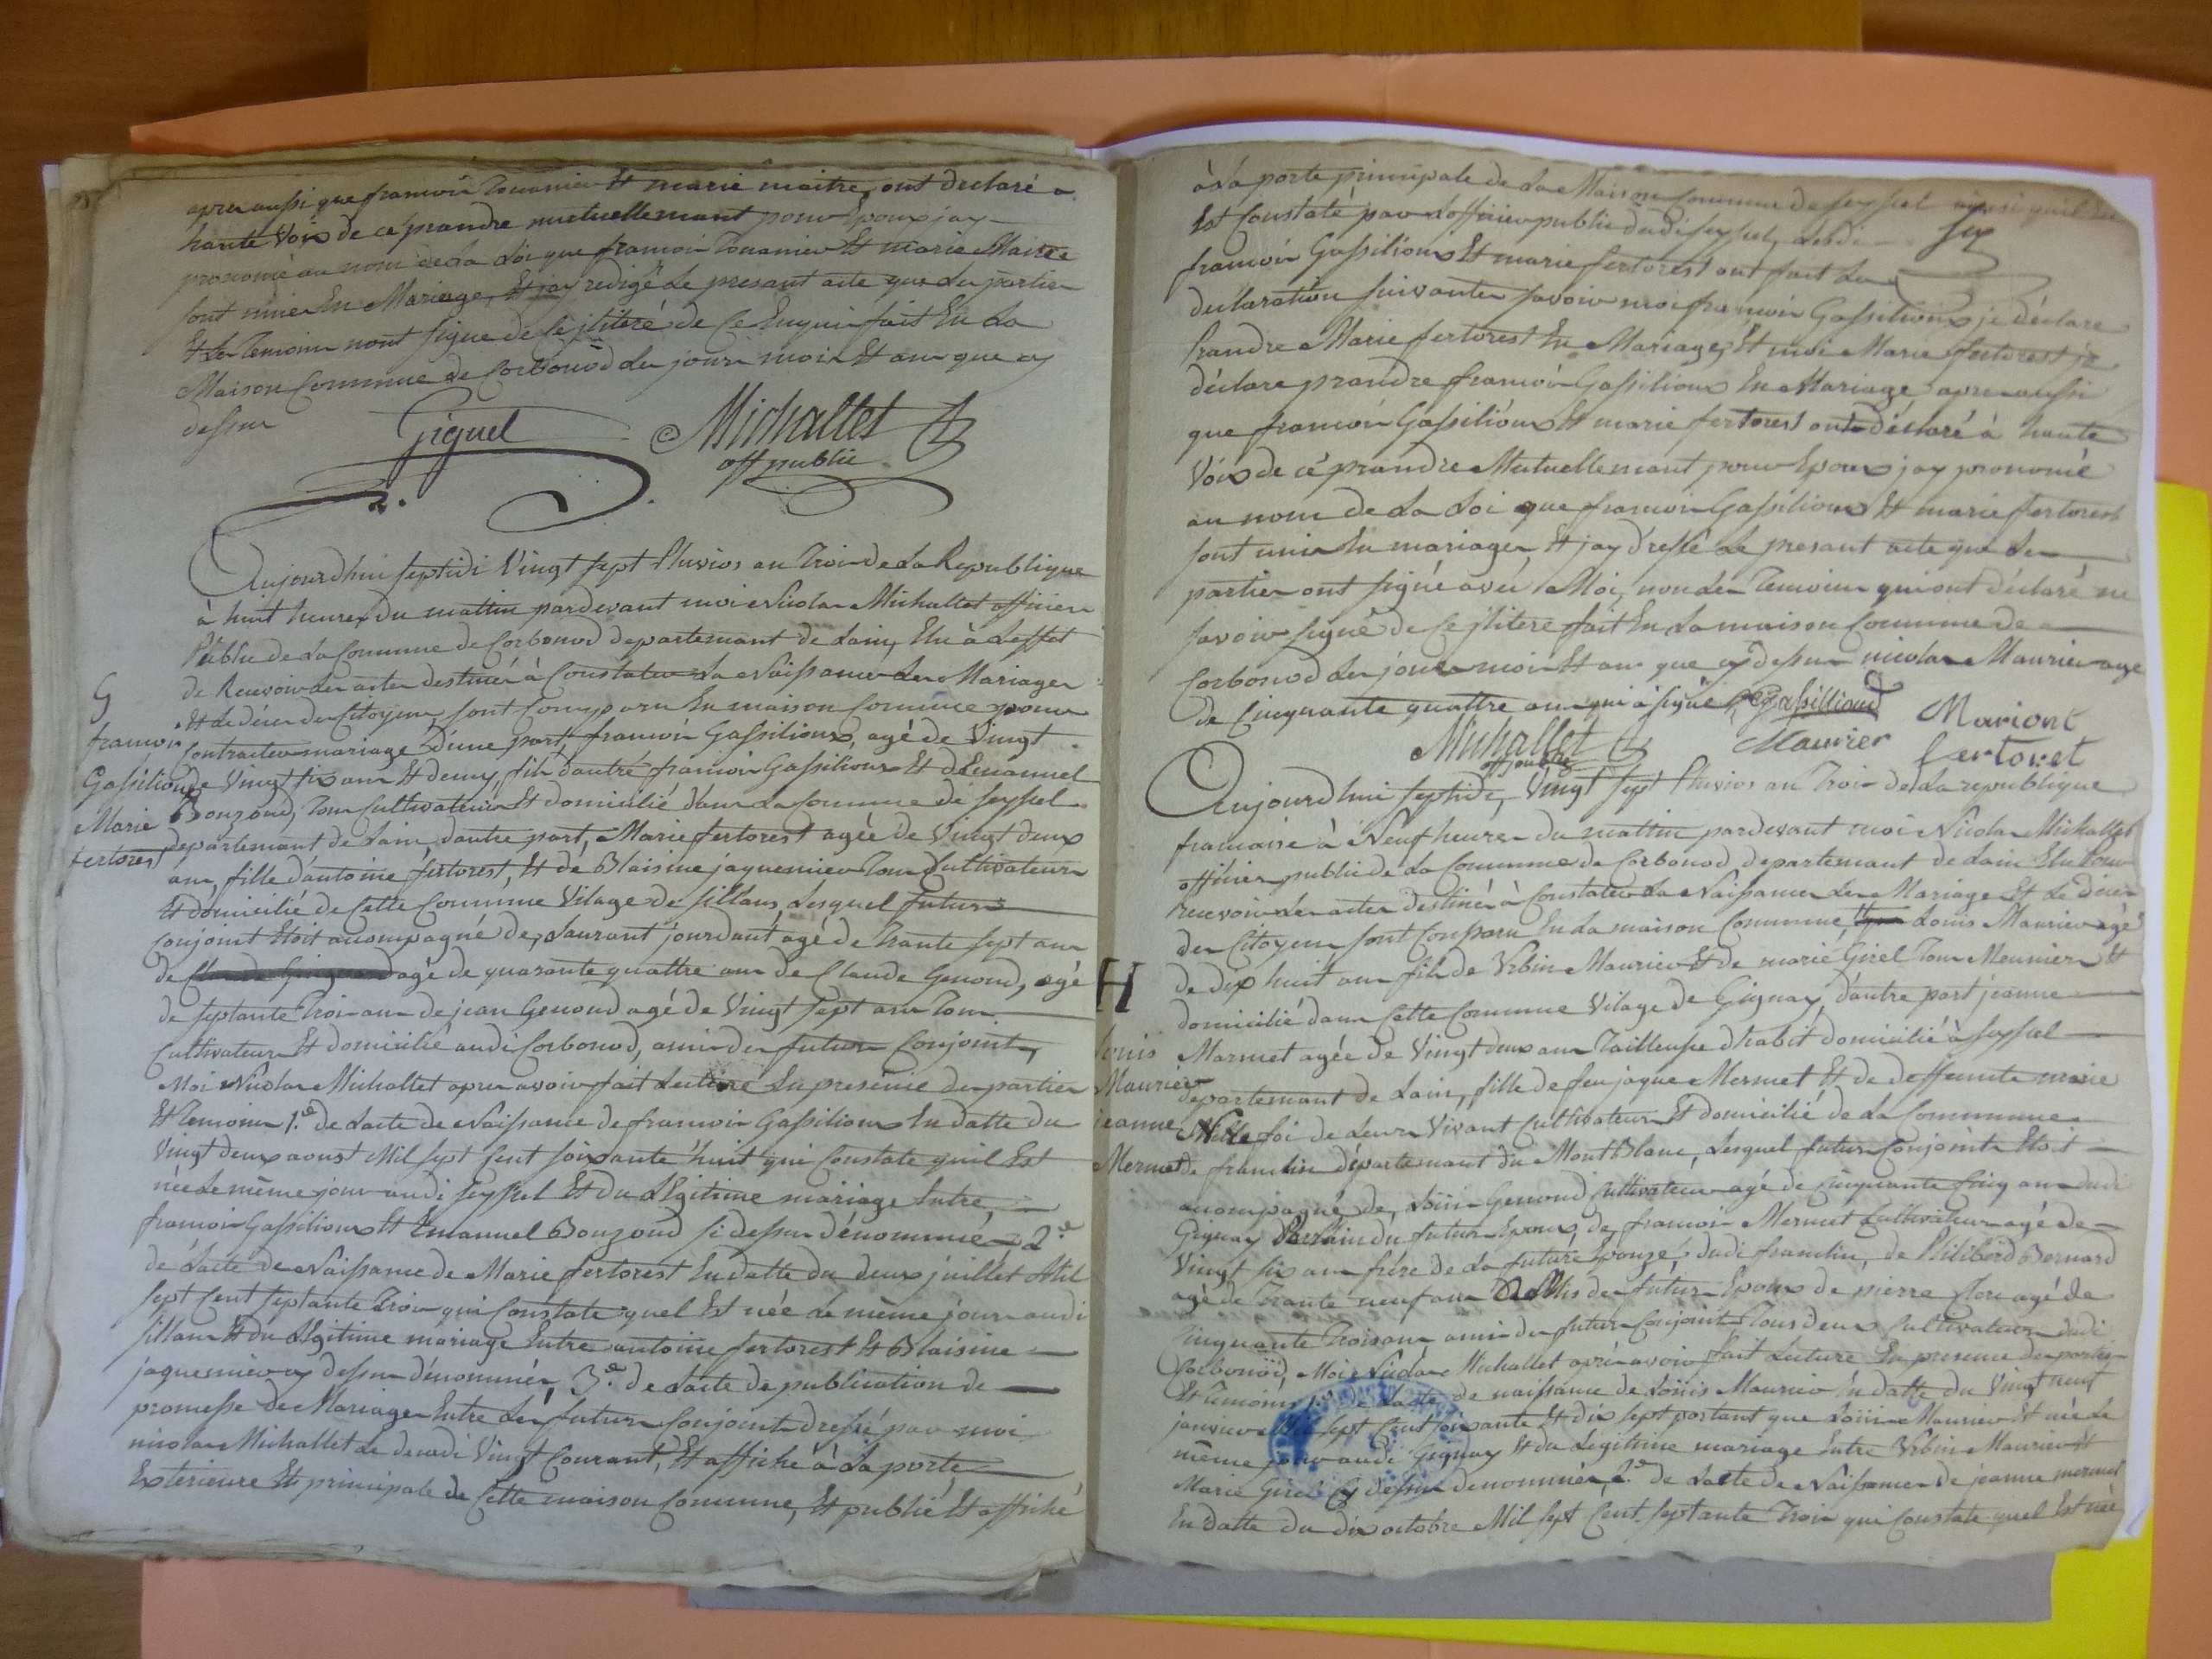 apres aussi que francois Touanier Et marie maitre, ont declaré a
haute Voix de ce prandre mutuellemant pour Epoux jay
prononcé au nom de la Loi que francois Touanier Et marie Maitre
sont unier En Mariage, Et jay redigé Le presant acte que Les partier
Et Les Temoins nont signé de ce jlliteré de ce Enquis fait En La
Maison Commune de Corbonod Les jours mois Et an que cy
dessus
Giguel Michallet
off public
Aujourdhui septidi Vingt sept Pluvios an Trois de La Republique
à huit heures du mattin pardevant moi Nicolas Michallet officier
Public de La Commune de Corbonod departemant de Lain, Elu à Leffet
de Recevoir Les actes destiné à Constater La Naissance Les Mariages
Et Le décés des Citoyens sont Comparu En maison Commune pour
Contracter mariage d'une part, francois Gassilioux, agé de Vingt
de Vingt six ans Et demy, fils dautre francois Gassilioux Et dEmanuel
Bonzond, Tous Cultivateurs Et domicilié dans La Commune de seyssel
departemant de Lain, dautre part, Marie fertorest agée de Vingt deux
ans, fille d'antoine fertorest, Et de Blaisine jaquemier Tous Cultivateurs
Et domicilié de Cette Commune Vilage de sillans Lesquel futurs
Conjoint Etoit acompagné de, Laurant jourdant agé de Trante sept ans
de agé de quarante quattre ans de Claude Genoud, agé
de septante Trois ans de jean Genoud agé de Vingt sept ans Tous
Cultivateurs Et domicilié audi Corbonod, amis des futurs Conjoint,
Moi Nicolas Michallet apres avoir fait Lecture En presence des partier
Et Temoins 1.e de Lacte de Naissance de francois Gassilioux En datte du
Vingt deux aoust Mil sept sent soixante huit qui Constate quil Est
née Le même jour audi seyssel Et du Légitime mariage Entre,
francois Gassilioux Et Emanuel Bonzond si dessus dénommé, 2.e
de Lacte de Naissance de Marie fertorest En datte du deux juillet Mil
sept Cent septante Trois qui Constate quel Est née Le même jour audi
sillans Et du Légitime mariage Entre antoine fertorest Et Blaisine
jaquemier cy dessus dénommés, 3.e de Lacte de publication de
promesse de Mariage Entre Les futurs Conjoint dressé par moi
nicolas Michallet Le decadi Vingt Courant, Et affiché à La porte
Exterieure Et principale de Cette maison Commune, Et publié Et affiché
G
francois
Gassilioux
Marie
fertorest
à La porte principale de La Maison Commune de seyssel ainsi quil
Est Constaté par Lofficier public dudi seyssel, Lesdi
francois Gassilioux Et marie fertorest ont fait La
declaration suivante savoir moi francois Gassilioux je déclare
Prandre Marie fertorest En Mariage, Et moi Marie fertorest je
déclare prandre francois Gassilioux En Mariage apres aussi
que francois Gassilioux Et marie fertorest ont déclaré à haute
Voix de cé prandre Mutuellemant pour Epoux jay prononcé
au nom de La Loi que francois Gassilioux Et marie fertorest
sont unis En mariage, Et jay dressé Le presant acte que Les
partier ont signé avec Moi, non Les Temoins qui ont déclaré ne
savoir signé de ce jlliteré fait En La maison Commune de
Corbonod Les jours mois Et an que cy dessus nicolas Maurier agé
de Cinquante quattre ans qui à signé Gassillioud Mariont
Michallet Maurier fertoret
off public
Aujourdhui septidi, Vingt sept Pluvios an Trois de La republique
francaise à Neuf heures du mattin pardevant moi Nicolas Michallet
officier public de La Commune de Corbonod, departemant de Lain Elu Pour
recevoir Les actes destiné à Constater La Naissance Les Mariage Et Le décés
des Citoyens sont Comparu En La maison Commune, Louis Maurier agé
de dix huit ans fils de Urbin Maurier Et de marie Girel Tous Meuniers Et
domicilié dans Cette Commune Vilage de Gignay, dautre part jeanne
Mermet agée de Vingt deux ans Tailleuse dhabit domicilié à seyssel
departemant de Lain, fille de feu jaque Mermet Et de deffeunte marie
foi de Leurs Vivant Cultivateurs Et domicilié de La Commune
de franclin département du Mont Blanc, Lesquel futurs Conjoints Etoit
acompagné de, Loüis Genoud Cultivateur agé de cinquante Cinq ans dudi
Gignay Parrain du futur Epoux, de francois Mermet Cultivateur agé de
Vingt six ans frére de La future Epouze, dudi franclin, de Philiberd Bernard
agé de Trante neuf ans des futurs Epoux de pierre flore agé de
Cinquante Trois ans ami des futurs Conjoint Tous deux Cultivateurs dudi
Corbonod, Moi Nicolas Michallet aprés avoir fait Lecture En presence des partier
Et Temoins 1.e de Lacte de naissance de Loüis Maurier En datte du Vingt neuf
janvier Mil sept Cent soixante Et dix sept portant que Loüis Maurier Et née Le
même jour audi Gignay Et du Legitime mariage Entre Urbin Maurier Et
Marie Girel Cy dessus denommés, 2.e de Lacte de Naissance de jeanne mermet
En datte du dix octobre Mil sept Cent septante Trois qui Constate quel Est née
H
Louis
Maurier
jeanne
Mermet